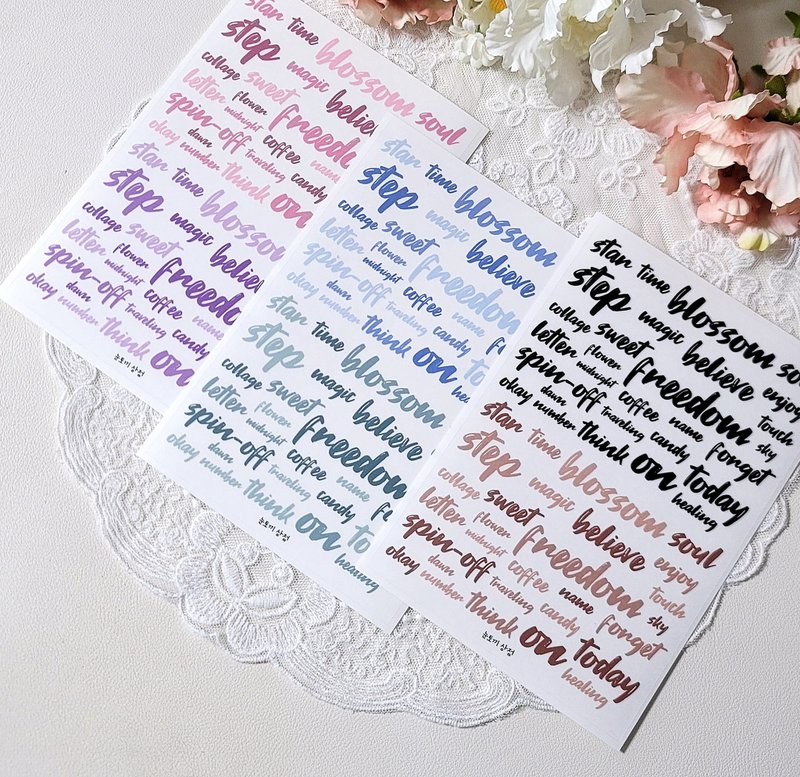 star time blossom soul
step magic believe
collage sweet
letter flower freedom
midnight
spin-off coffee name
dawn traveling candy
okay number think on
star time blossom
step magic believe
collage sweet
letter flower freedom
midnight
spin-off coffee name
dawn traveling candy
okay number think on
눈토끼 상점
star time blossom
step magic believe
collage sweet
letter flower freedom
midnight
spin-off coffee name
dawn traveling candy
okay number think on
star time blossom
step magic believe
collage sweet
letter flower freedom
midnight
spin-off coffee name
dawn traveling candy
okay number think on
healing
눈토끼 상점
star time blossom soul
step magic believe enjoy
collage sweet touch
letter flower freedom sky
midnight
spin-off coffee name forget
dawn traveling candy
okay number think on today
healing
star time blossom soul
step magic believe enjoy
collage sweet touch
letter flower freedom sky
midnight
spin-off coffee name forget
dawn traveling candy
okay number think on today
healing
눈토끼 상점